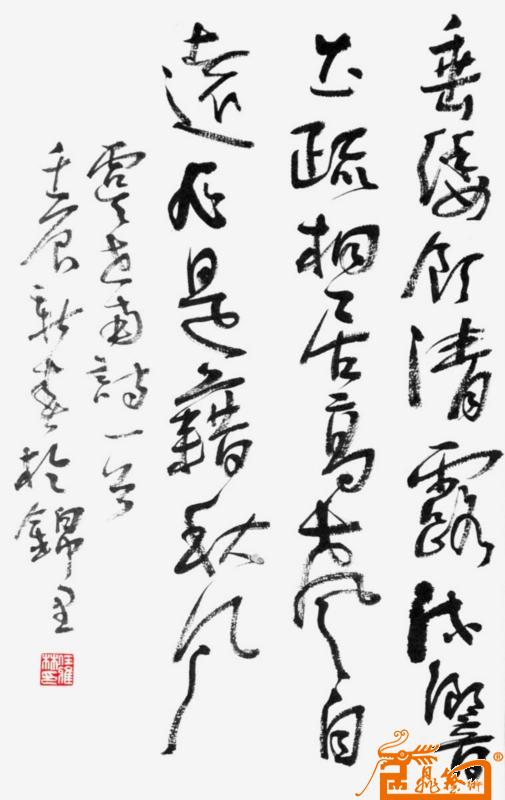 垂緌飲清露流響
出疏桐居高聲自
遠非是藉秋風
虞世南詩一首
壬辰新春於錦里